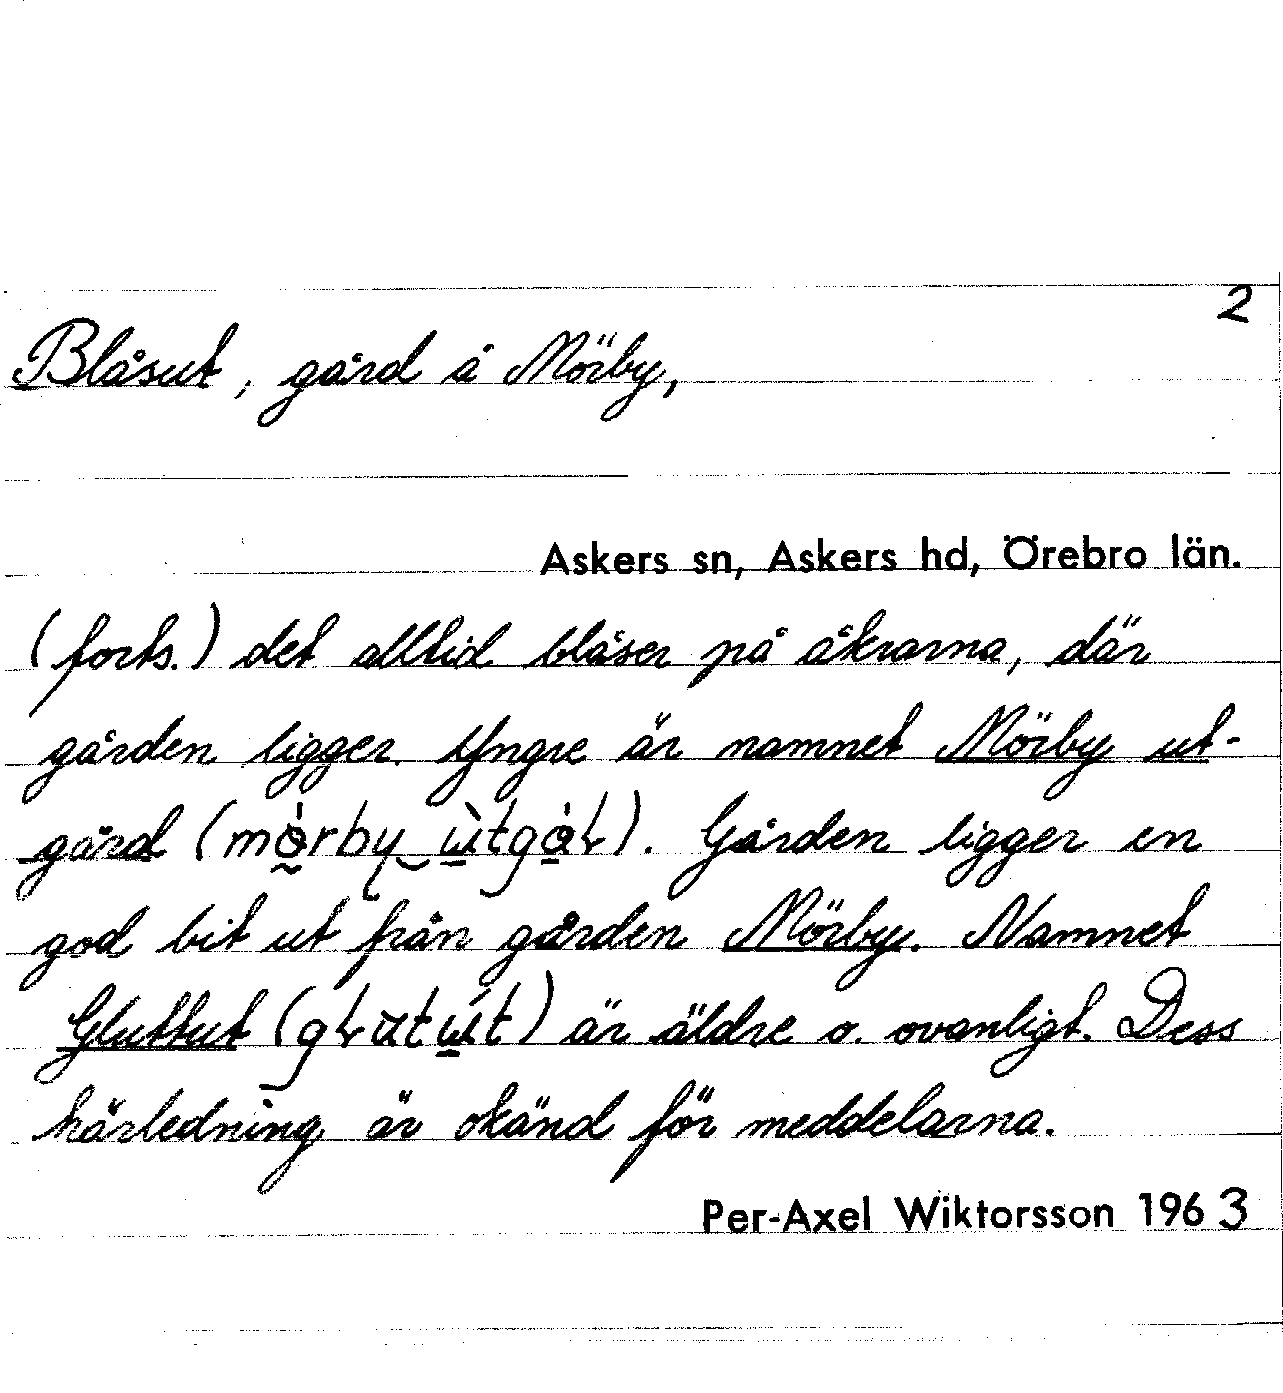 2
Blåsut, gård å Mörby,
Askers sn, Askers hd, Örebro län.
(forts.) det alltid blåser på åkrarna, där
gården ligger. Yngre är namnet Mörby ut-
gård (). Gården ligger en
god bit ut från gården Mörby. Namnet
Gluttut () är äldre o. ovanligt. Dess
härledning är okänd för meddelarna.
Per-Axel Wiktorsson 1963